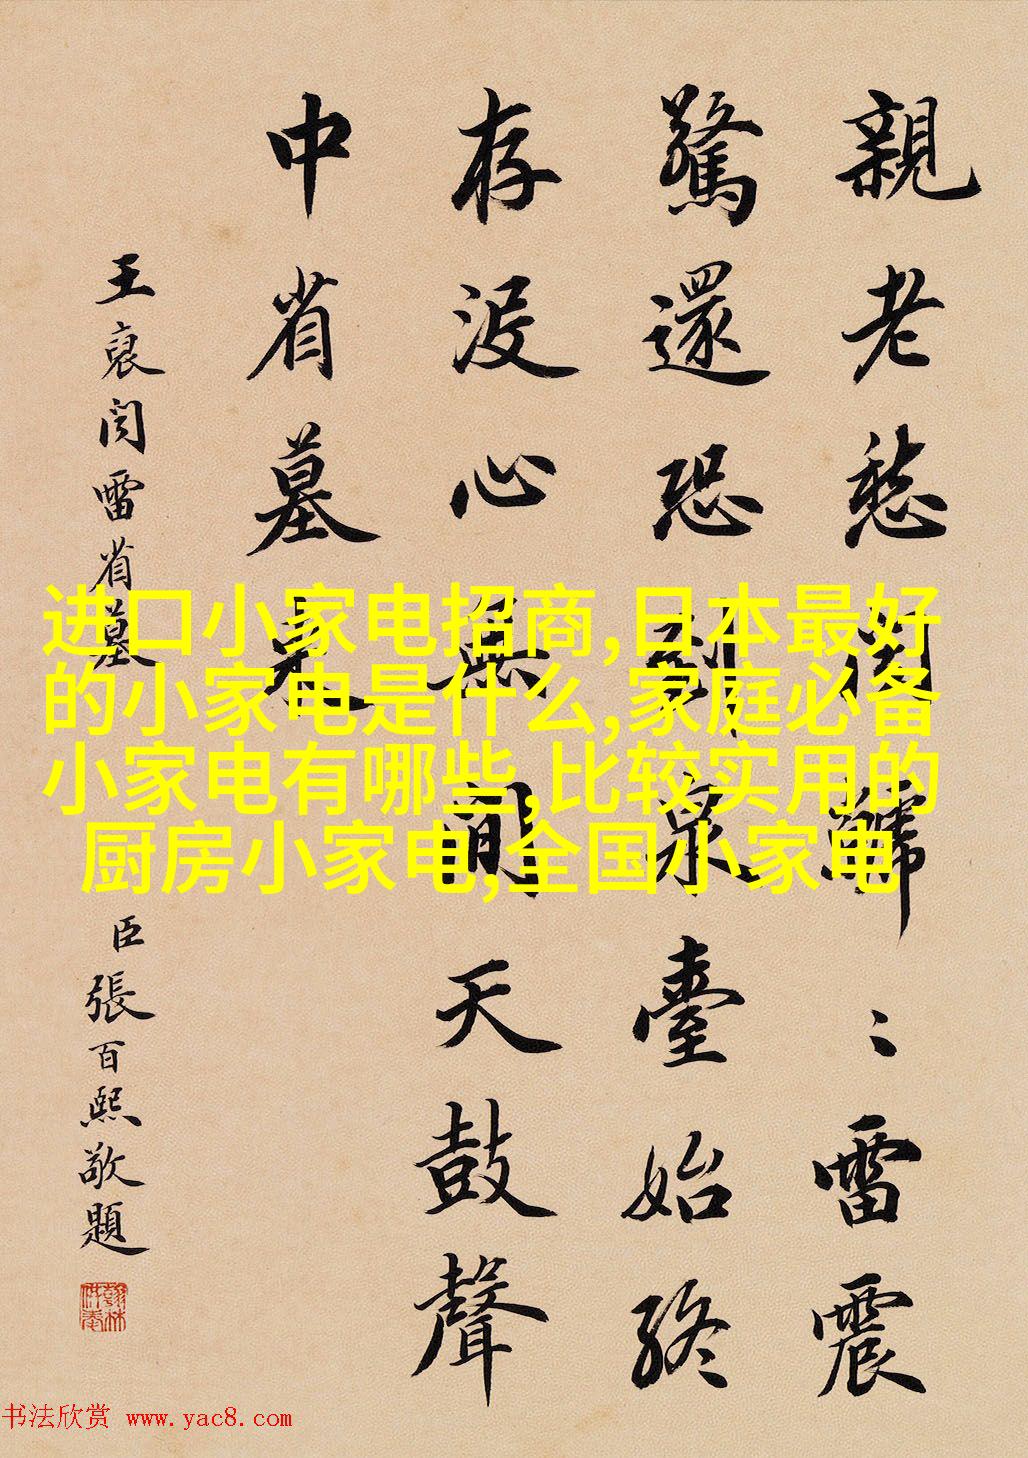 親老愁聞〻雷震
驚還恐到泉臺始終
存沒心無間天鼓聲
中省墓來
王裒聞雷省墓
臣張百熙敬題
翰林供奉
进口小家电招商,日本最好
的小家电是什么,家庭必备
小家电有哪些,比较实用的
厨房小家电,全国小家电
书法欣赏 www.yac8.com